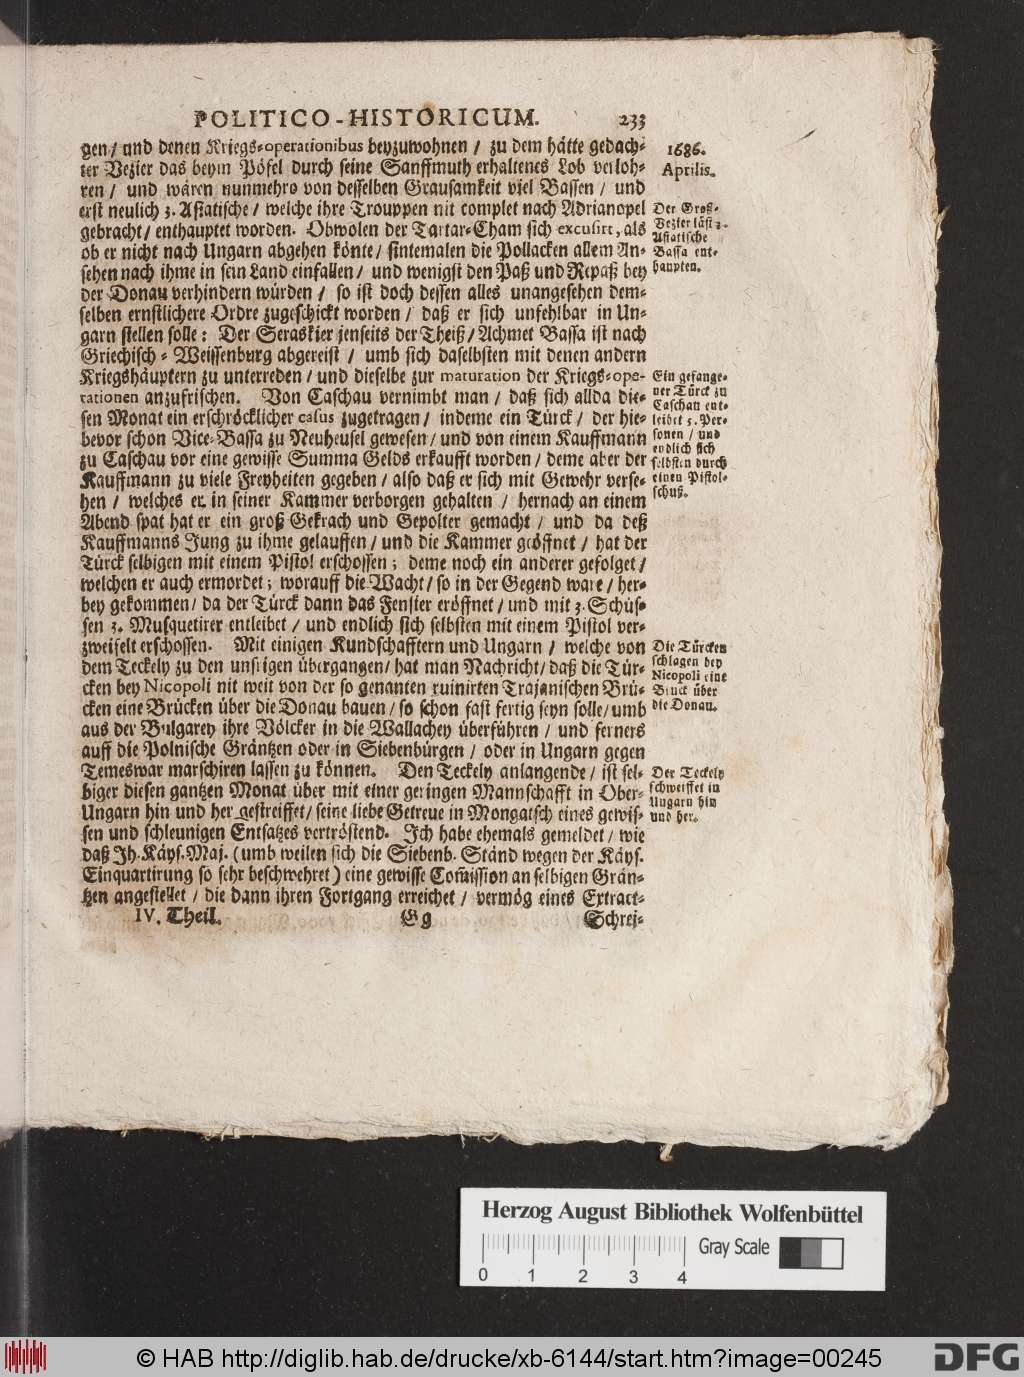 POLITICO-HISTORICUM. 233
gen / und denen Kriegs-operationibus beyzuwohnen / zu dem hätte gedach-
ter Vezier das beym Pöfel durch seine Sanfftmuth erhaltenes Lob verloh-
ren / und wären nunmehro von desselben Grausamkeit viel Bassen / und
erst neulich 3. Asiatische / welche ihre Trouppen nit complet nach Adrianopel
gebracht / enthauptet worden. Obwolen der Tartar-Cham sich excusirt, als
ob er nicht nach Ungarn abgehen könte / sintemalen die Pollacken allem An-
sehen nach ihme in sein Land einfallen / und wenigst den Paß und Repaß bey
der Donau verhindern würden / so ist doch dessen alles unangesehen dem-
selben ernstlichere Ordre zugeschickt worden / daß er sich unfehlbar in Un-
garn stellen solle: Der Seraskier jenseits der Theiß / Achmet Bassa ist nach
Griechisch-Weissenburg abgereist / umb sich daselbsten mit denen andern
Kriegshäuptern zu unterreden / und dieselbe zur maturation der Kriegs-ope-
rationen anzufrischen. Von Caschau vernimbt man / daß sich allda die-
sen Monat ein erschröcklicher casus zugetragen / indeme ein Türck / der hie-
bevor schon Vice-Bassa zu Neuheusel gewesen / und von einem Kauffmann
zu Caschau vor eine gewisse Summa Gelds erkaufft worden / deme aber der
Kauffmann zu viele Freyheiten gegeben / also daß er sich mit Gewehr verse-
hen / welches er in seiner Kammer verborgen gehalten / hernach an einem
Abend spat hat er ein groß Gekrach und Gepolter gemacht / und da deß
Kauffmanns Jung zu ihme gelauffen / und die Kammer geöffnet / hat der
Türck selbigen mit einem Pistol erschossen; deme noch ein anderer gefolget /
welchen er auch ermordet; worauff die Wacht / so in der Gegend ware / her-
bey gekommen / da der Türck dann das Fenster eröffnet / und mit 3. Schüs-
sen 3. Musquetirer entleibet / und endlich sich selbsten mit einem Pistol ver-
zweifelt erschossen. Mit einigen Kundschafftern und Ungarn / welche von
dem Teckely zu den unsrigen übergangen / hat man Nachricht / daß die Tür-
cken bey Nicopoli nit weit von der so genanten ruinirten Trajanischen Brü-
cken eine Brücken über die Donau bauen / so schon fast fertig seyn solle / umb
aus der Bulgarey ihre Völcker in die Wallachey überführen / und ferners
auff die Polnische Gräntzen oder in Siebenbürgen / oder in Ungarn gegen
Temeswar marschiren lassen zu können. Den Teckely anlangende / ist sel-
biger diesen gantzen Monat über mit einer geringen Mannschafft in Ober-
Ungarn hin und her gestreiffet / seine liebe Getreue in Mongatsch eines gewis-
sen und schleunigen Entsatzes vertröstend. Ich habe ehemals gemeldet / wie
daß Ih. Käys. Maj. (umb weilen sich die Siebenb. Ständ wegen der Käys.
Einquartirung so sehr beschwehret) eine gewisse Com̃ission an selbigen Grän-
tzen angestellet / die dann ihren Fortgang erreichet / vermög eines Extract-
IV. Theil. Gg Schrei-
1686.
Aprilis.
Der Groß-
Vezier läst 3.
Asiatische
Bassa ent-
haupten.
Ein gefange-
ner Türck zu
Caschau ent-
leibet 5. Per-
sonen / und
endlich sich
selbsten durch
einen Pistol-
schuß.
Die Türcken
schlagen bey
Nicopoli eine
Bruck über
die Donau.
Der Teckely
schweiffet in
Ungarn hin
und her.
Herzog August Bibliothek Wolfenbüttel
Gray Scale
0 1 2 3 4
© HAB http://diglib.hab.de/drucke/xb-6144/start.htm?image=00245
DFG